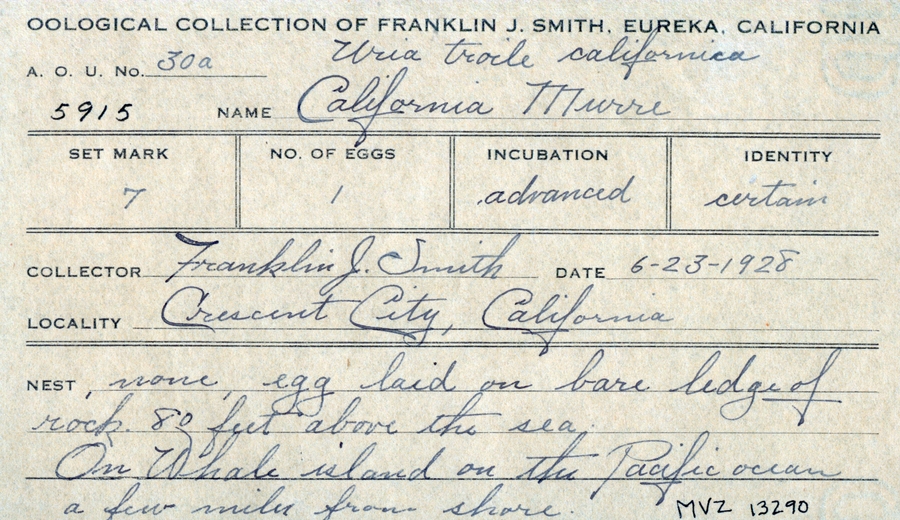 OOLOGICAL COLLECTION OF FRANKLIN J. SMITH, EUREKA, CALIFORNIA
A. O. U. No. 30a Uria troile californica
5915 NAME California Murre
SET MARK NO. OF EGGS INCUBATION IDENTITY
7 1 advanced certain
COLLECTOR Franklin J. Smith DATE 6-23-1928
LOCALITY Crescent City, California
NEST, none, egg laid on bare ledge of
rock. 80 feet above the sea.
On Whale island on the Pacific ocean
a few miles from shore. MVZ 13290